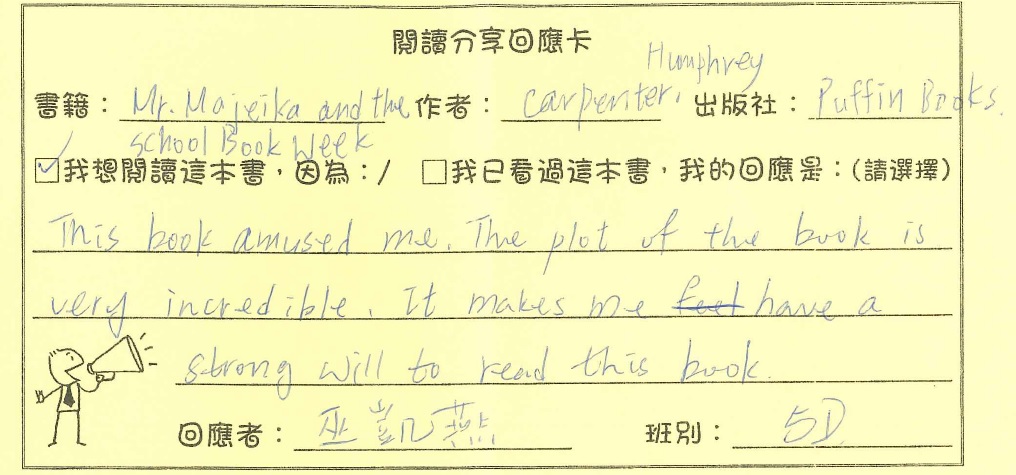 閱讀分享回應卡
書籍：Mr. Majeika and the school Book Week 作者：Carpenter, Humphrey 出版社：Puffin Books.
☑我想閱讀這本書，因為：/ ☐我已看過這本書，我的回應是：(請選擇)
This book amused me. The plot of the book is
very incredible. It makes me feel have a
strong will to read this book.
回應者：巫凱燕 班別：5D